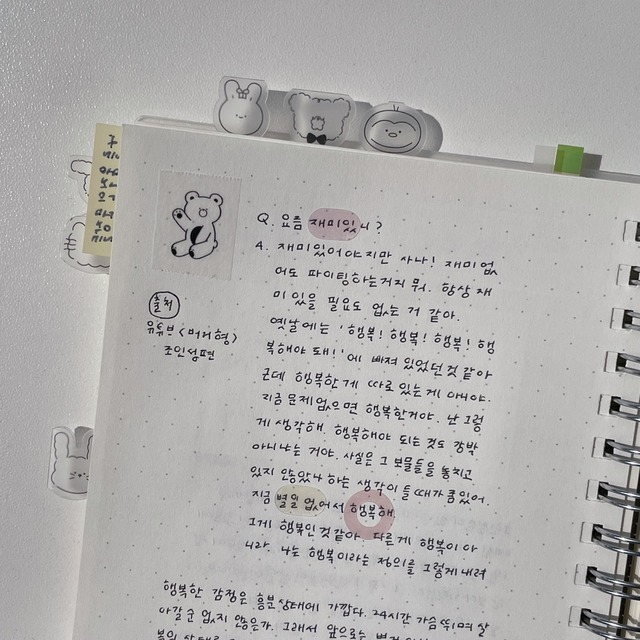 Q. 요즘 재미있니?
A. 재미있어야지만 사나! 재미없
어도 파이팅하는거지 뭐. 항상 재
미 있을 필요도 없는 것 같아.
옛날에는 '행복! 행복! 행복! 행
복해야 돼!'에 빠져 있었던것 같아
근데 행복한게 따로 있는게 아니야.
지금 문제없으면 행복한거야. 난 그렇
게 생각해. 행복해야 되는 것도 강박
아니냐는 거야. 사실은 그 보물들을 놓치고
있지 않았나 하는 생각이 들 때가 좀있어.
지금 별일 없어서 행복해.
그게 행복인것같아. 다른게 행복이 아
니라. 나는 행복이라는 정의를 그렇게 내려
출처
유튜브 <머리형>
조인성편
행복한 감정은 흥분상태에 가깝다. 24시간 가슴뛰며 살
아갈 순 없지 않은가. 그래서 앞으로는